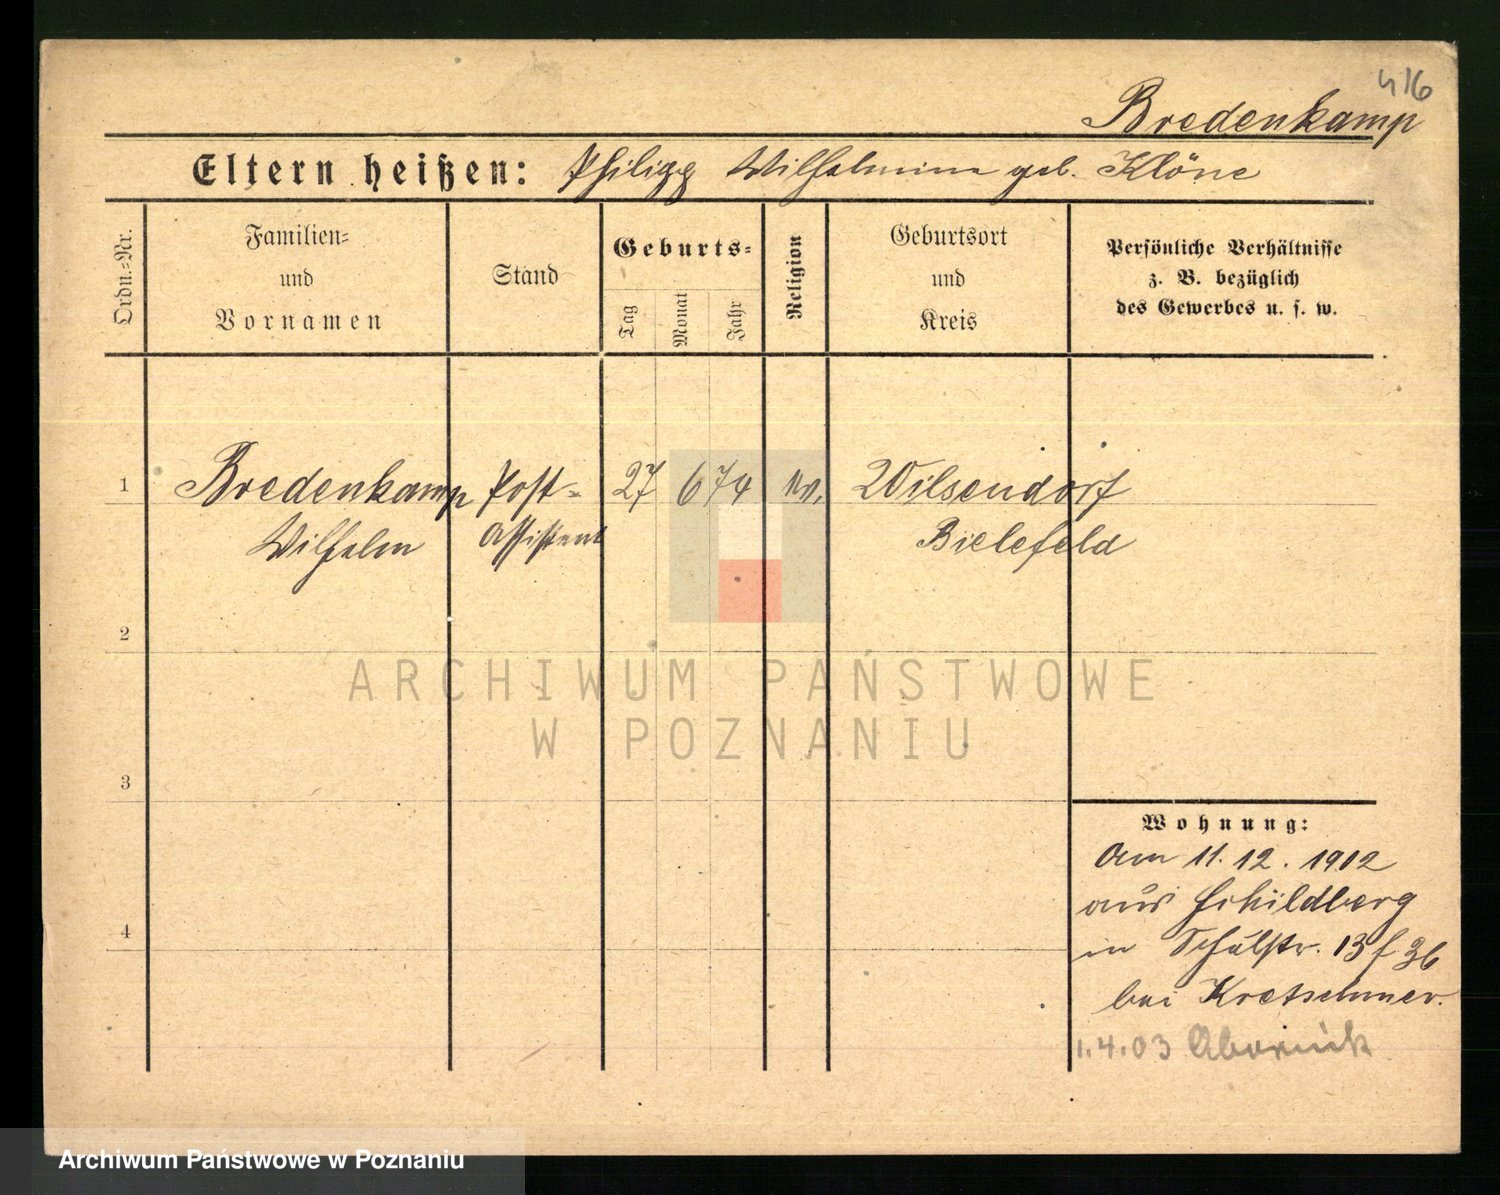 416
Bredenkamp
Eltern heißen: Philipp Wilhelmine geb. Klöne
Ordn.-Nr.
Familien-
und
Vornamen
Stand
Geburts-
Tag
Monat
Jahr
Religion
Geburtsort
und
Kreis
Persönliche Verhältnisse
z. B. bezüglich
des Gewerbes u. s. w.
1 Bredenkamp Post- 27 6 74 ev. Wilsendorf
Wilhelm Assistent Bielefeld
2
ARCHIWUM PAŃSTWOWE
W POZNANIU
3
Wohnung:
Am 11. 12. 1902
aus Schildberg
in Schulstr. 13
4
bei Kretschmer.
1.4.03 Abornik
Archiwum Państwowe w Poznaniu